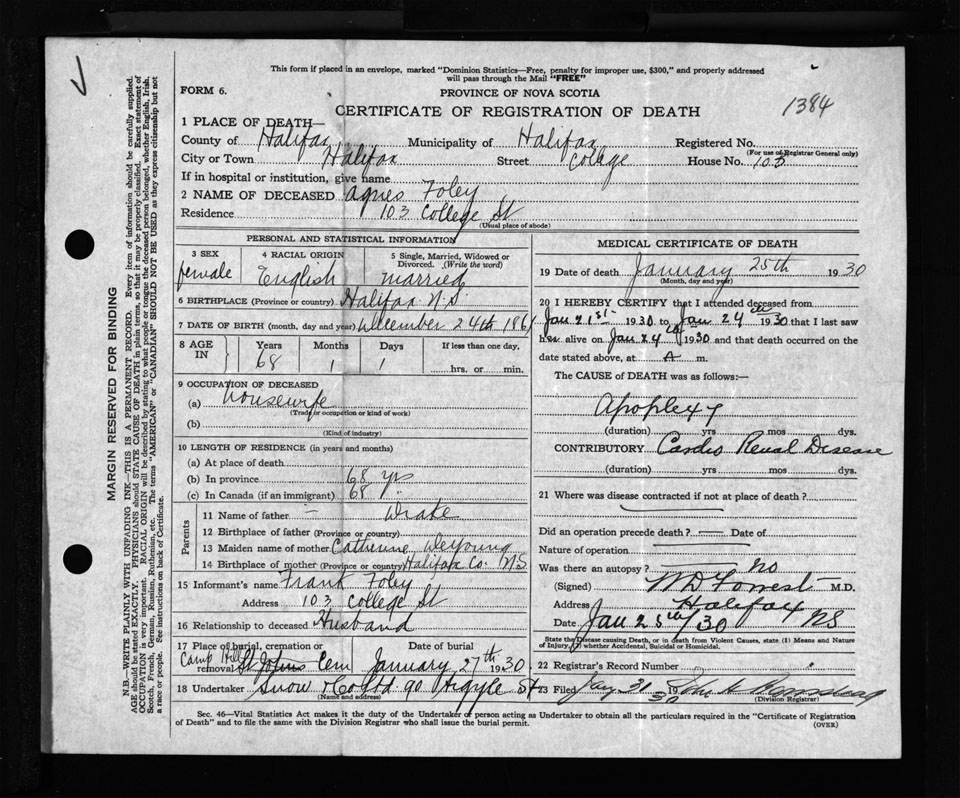 This form if placed in an envelope, marked "Dominion Statistics—Free, penalty for improper use, $300," and properly addressed
will pass through the Mail "FREE"
FORM 6.
PROVINCE OF NOVA SCOTIA
CERTIFICATE OF REGISTRATION OF DEATH
1384
1 PLACE OF DEATH—
County of Halifax Municipality of Halifax Registered No.
(For use of Registrar General only)
City or Town Halifax Street College House No. 103
If in hospital or institution, give name
2 NAME OF DECEASED Agnes Foley
Residence 103 College St
(Usual place of abode)
PERSONAL AND STATISTICAL INFORMATION
3 SEX 4 RACIAL ORIGIN 5 Single, Married, Widowed or
Divorced. (Write the word)
female English married
6 BIRTHPLACE (Province or country) Halifax N.S.
7 DATE OF BIRTH (month, day and year) December 24th 1861
8 AGE IN Years Months Days If less than one day,
68 1 1 hrs. or min.
9 OCCUPATION OF DECEASED
(a) housewife
(Trade or occupation or kind of work)
(b)
(Kind of industry)
10 LENGTH OF RESIDENCE (in years and months)
(a) At place of death
(b) In province 68 yrs
(c) In Canada (if an immigrant) 68 "
Parents
11 Name of father — Drake
12 Birthplace of father (Province or country)
13 Maiden name of mother Catherine DeYoung
14 Birthplace of mother (Province or country) Halifax Co. N.S.
15 Informant's name Frank Foley
Address 103 College St
16 Relationship to deceased Husband
17 Place of burial, cremation or removal Date of burial
Camp Hill St Johns Cem January 27th 1930
18 Undertaker Snow & Co Ltd 90 Argyle St
(Name and address)
MEDICAL CERTIFICATE OF DEATH
19 Date of death January 25th 1930
(Month, day and year)
20 I HEREBY CERTIFY that I attended deceased from
Jan 21st 1930 to Jan 24th 1930 that I last saw
her alive on Jan 24 1930 and that death occurred on the
date stated above, at A m.
The CAUSE OF DEATH was as follows:—
Apoplexy
(duration) yrs mos dys.
CONTRIBUTORY Cardio Renal Disease
(duration) yrs mos dys.
21 Where was disease contracted if not at place of death?
Did an operation precede death? Date of
Nature of operation
Was there an autopsy? no
(Signed) W D Forrest M.D.
Address Halifax
Date Jan 25th/30 NS
State the Disease causing Death, or in death from Violent Causes, state (1) Means and Nature
of Injury, (2) whether Accidental, Suicidal or Homicidal.
22 Registrar's Record Number
23 Filed Jan 31 30
(Division Registrar)
Sec. 46—Vital Statistics Act makes it the duty of the Undertaker or person acting as Undertaker to obtain all the particulars required in the "Certificate of Registration
of Death" and to file the same with the Division Registrar who shall issue the burial permit.
(OVER)
MARGIN RESERVED FOR BINDING
N.B.—WRITE PLAINLY WITH UNFADING INK—THIS IS A PERMANENT RECORD. Every item of information should be carefully supplied.
AGE should be stated EXACTLY. PHYSICIANS should STATE CAUSE OF DEATH in plain terms, so that it may be properly classified. Exact statement of
OCCUPATION is very important. RACIAL ORIGIN will be described by stating to what people or tongue the deceased person belonged, whether English, Irish,
Scotch, French, German, Russian, Ruthenian, etc. The terms "AMERICAN" or "CANADIAN" SHOULD NOT BE USED as they express citizenship but not
a race or people. See instructions on back of Certificate.